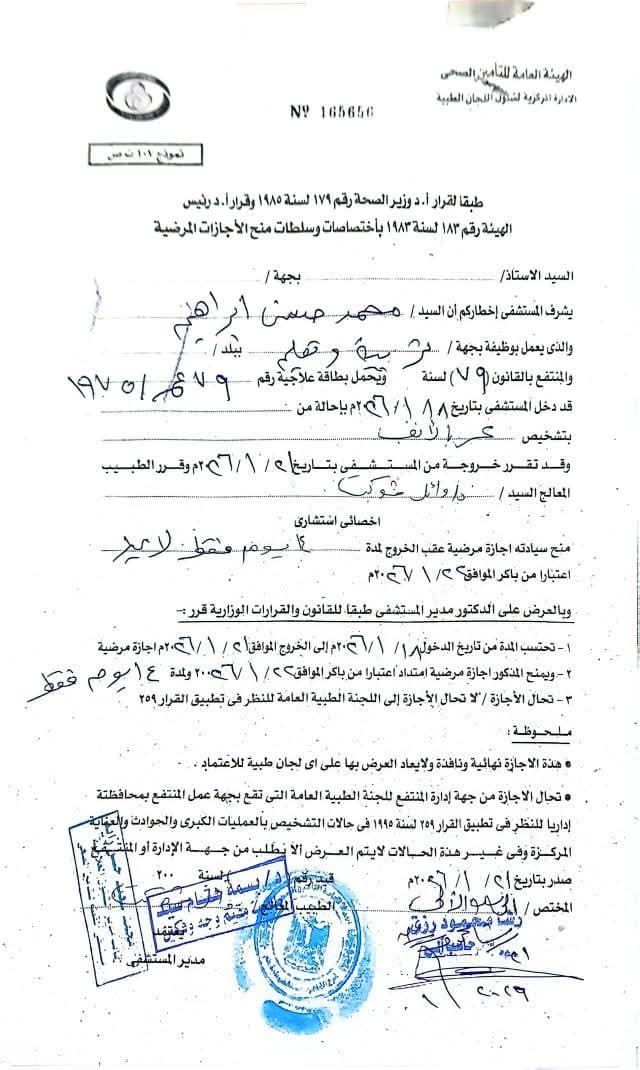 الهيئة العامة للتأمين الصحى
الادارة المركزية لشئون اللجان الطبية
Nº 165656
نموذج ١٠١ ت ص
طبقا لقرار أ.د وزير الصحة رقم ١٧٩ لسنة ١٩٨٥ وقرار أ.د رئيس
الهيئة رقم ١٨٣ لسنة ١٩٨٣ بأختصاصات وسلطات منح الأجازات المرضية
السيد الاستاذ/ بجهة /
يشرف المستشفى إخطاركم أن السيد / محمد حسن ابراهيم
والذى يعمل بوظيفة بجهة / تربية وتعلم ببلد /
والمنتفع بالقانون (٧٩) لسنة ويحمل بطاقة علاجية رقم
قد دخل المستشفى بتاريخ ١٨ / ١ / ٢٠٢٦م بإحالة من
بتشخيص الأنف
وقد تقرر خروجة من المستشفى بتاريخ ٢١ / ١ / ٢٠٢٦م وقرر الطبيب
المعالج السيد / د/ وائل شوكت
اخصائى استشارى
منح سيادته اجازة مرضية عقب الخروج لمدة ١٤ يوم فقط لا غير
اعتبارا من باكر الموافق ٢٢ / ١ / ٢٠٢٦م
وبالعرض على الدكتور مدير المستشفى طبقا للقانون والقرارات الوزارية قرر :-
١- تحتسب المدة من تاريخ الدخول ١٨ / ١ / ٢٠٢٦م إلى الخروج الموافق ٢١ / ١ / ٢٠٢٦م اجازة مرضية
٢- ويمنح المذكور اجازة مرضية امتداد اعتبارا من باكر الموافق ٢٢ / ١ / ٢٠٢٦ ولمدة ١٤ يوم فقط
٣- تحال الأجازة / لا تحال الأجازة إلى اللجنة الطبية العامة للنظر فى تطبيق القرار ٢٥٩
ملحوظة :
• هذة الاجازة نهائية ونافذة ولايعاد العرض بها على اى لجان طبية للاعتماد .
• تحال الاجازة من جهة إدارة المنتفع للجنة الطبية العامة التى تقع بجهة عمل المنتفع بمحافظتة
إداريا للنظر فى تطبيق القرار ٢٥٩ لسنة ١٩٩٥ فى حالات التشخيص بالعمليات الكبرى والحوادث والعناية
المركزة وفى غيير هذة الحالات لايتم العرض ألا بطلب من جهة الإدارة أو المنتفع
صدر بتاريخ ٢١ / ١ / ٢٠٢٦م قيد رقم لسنة ٢٠٠
المختص / الطبيب المعالج /
رشا محمود رزق
يعتمد
مدير المستشفى